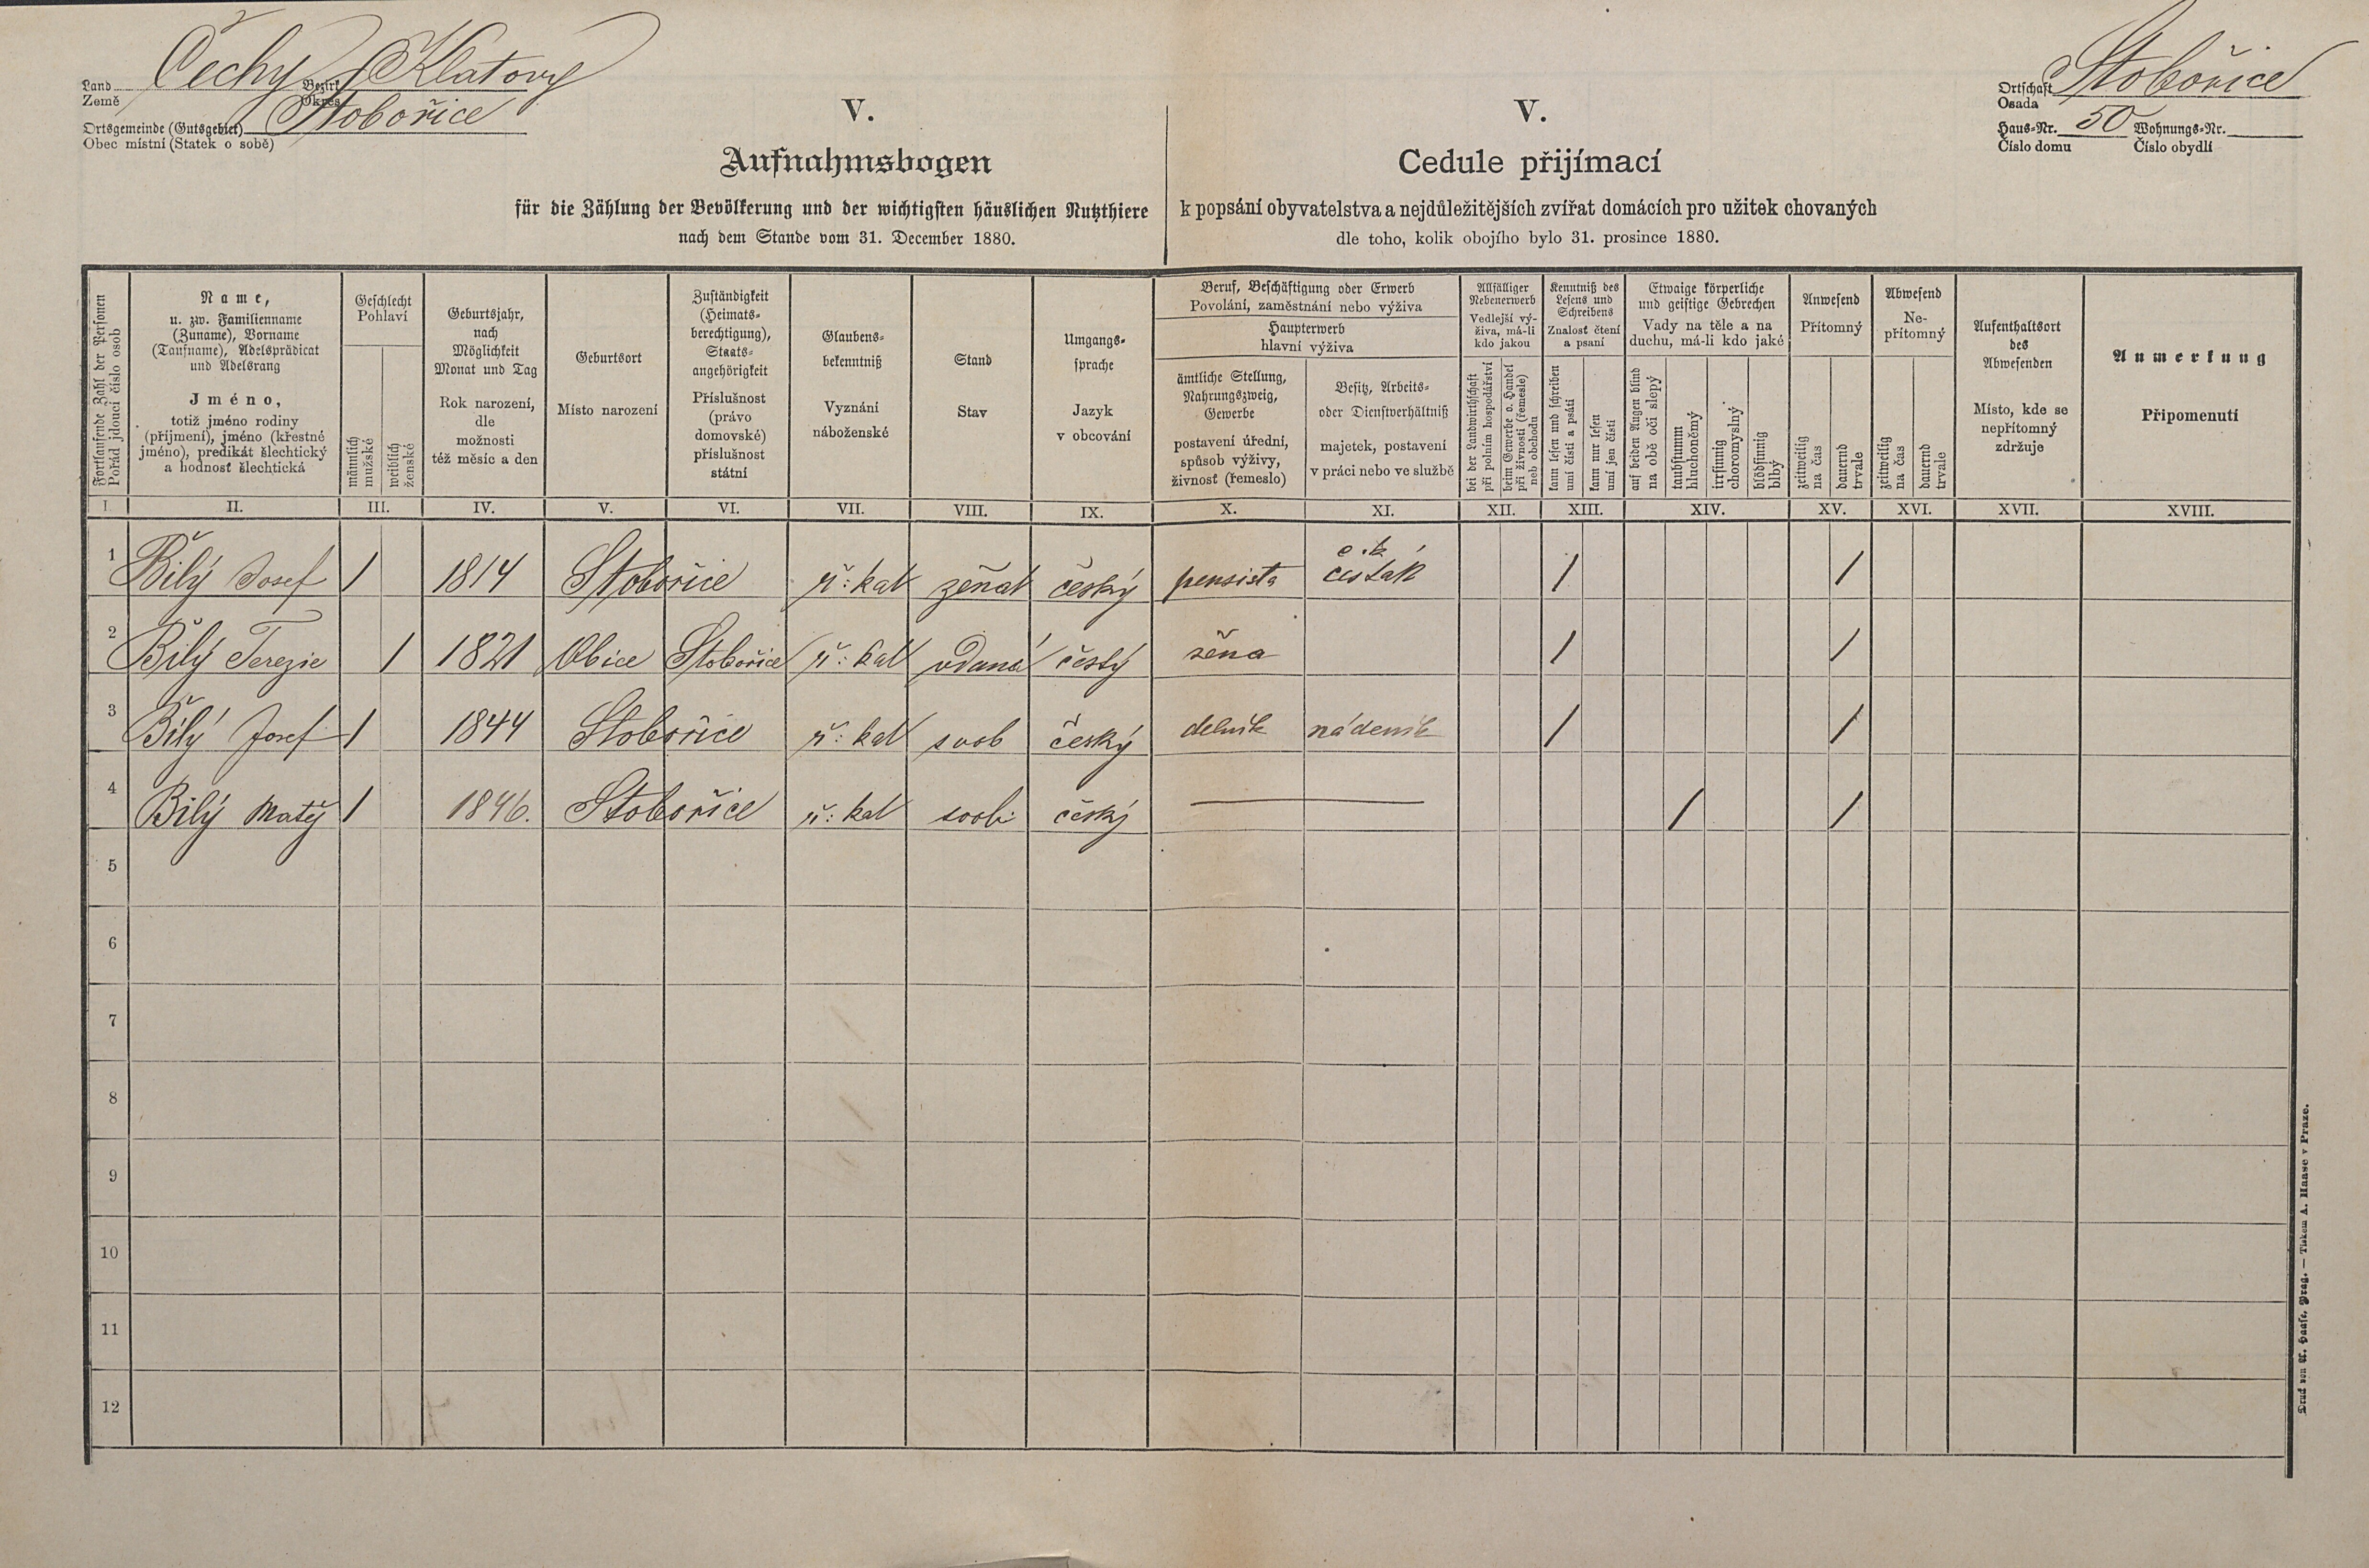 Land Čechy Bezirk Klatovy
Země Okres
Ortsgemeinde (Gutsgebiet) Stobořice
Obec místní (Statek o sobě)
Ortschaft Stobořice
Osada
Haus-Nr. 50 Wohnungs-Nr.
Číslo domu Číslo obydlí
V.
Aufnahmsbogen
für die Zählung der Bevölkerung und der wichtigsten häuslichen Nutzthiere
nach dem Stande vom 31. December 1880.
V.
Cedule přijímací
k popsání obyvatelstva a nejdůležitějších zvířat domácích pro užitek chovaných
dle toho, kolik obojího bylo 31. prosince 1880.
Fortlaufende Zahl der Personen
Pořád jdoucí číslo osob
Name,
u. zw. Familienname
(Zuname), Vorname
(Taufname), Adelsprädicat
und Adelsrang
Jméno,
totiž jméno rodiny
(příjmení), jméno (křestné
jméno), predikát šlechtický
a hodnosť šlechtická
Geschlecht
Pohlaví
männlich
mužské
weiblich
ženské
Geburtsjahr,
nach
Möglichkeit
Monat und Tag
Rok narození,
dle
možnosti
též měsíc a den
Geburtsort
Místo narození
Zuständigkeit
(Heimats-
berechtigung),
Staats-
angehörigkeit
Příslušnost
(právo
domovské)
příslušnost
státní
Glaubens-
bekenntniß
Vyznání
náboženské
Stand
Stav
Umgangs-
sprache
Jazyk
v obcování
Beruf, Beschäftigung oder Erwerb
Povolání, zaměstnání nebo výživa
Haupterwerb
hlavní výživa
ämtliche Stellung,
Nahrungszweig,
Gewerbe
postavení úřední,
spůsob výživy,
živnosť (řemeslo)
Besitz, Arbeits-
oder Dienstverhältniß
majetek, postavení
v práci nebo ve službě
Allfälliger
Nebenerwerb
Vedlejší vý-
živa, má-li
kdo jakou
bei der Landwirthschaft
při polním hospodářství
beim Gewerbe o. Handel
při živnosti (řemesle)
neb obchodu
Kenntniß des
Lesens und
Schreibens
Znalosť čtení
a psaní
kann lesen und schreiben
umí čísti a psáti
kann nur lesen
umí jen čísti
Etwaige körperliche
und geistige Gebrechen
Vady na těle a na
duchu, má-li kdo jaké
auf beiden Augen blind
na obě oči slepý
taubstumm
hluchoněmý
irrsinnig
choromyslný
blödsinnig
blbý
Anwesend
Přítomný
zeitweilig
na čas
dauernd
trvale
Abwesend
Ne-
přítomný
zeitweilig
na čas
dauernd
trvale
Aufenthaltsort
des
Abwesenden
Místo, kde se
nepřítomný
zdržuje
Anmerkung
Připomenutí
I. II. III. IV. V. VI. VII. VIII. IX. X. XI. XII. XIII. XIV. XV. XVI. XVII. XVIII.
1 Bílý Josef 1 1814 Stobořice ř: kat ženat český pensista c. k. cesták / /
2 Bílý Terezie 1 1821 Obice Stobořice ř: kat vdaná český žena / /
3 Bílý Josef 1 1844 Stobořice ř: kat svob český delník nádeník / /
4 Bílý Matěj 1 1846. Stobořice ř: kat svob: český — / /
5
6
7
8
9
10
11
12
Druck von A. Haase, Prag. — Tiskem A. Haase v Praze.